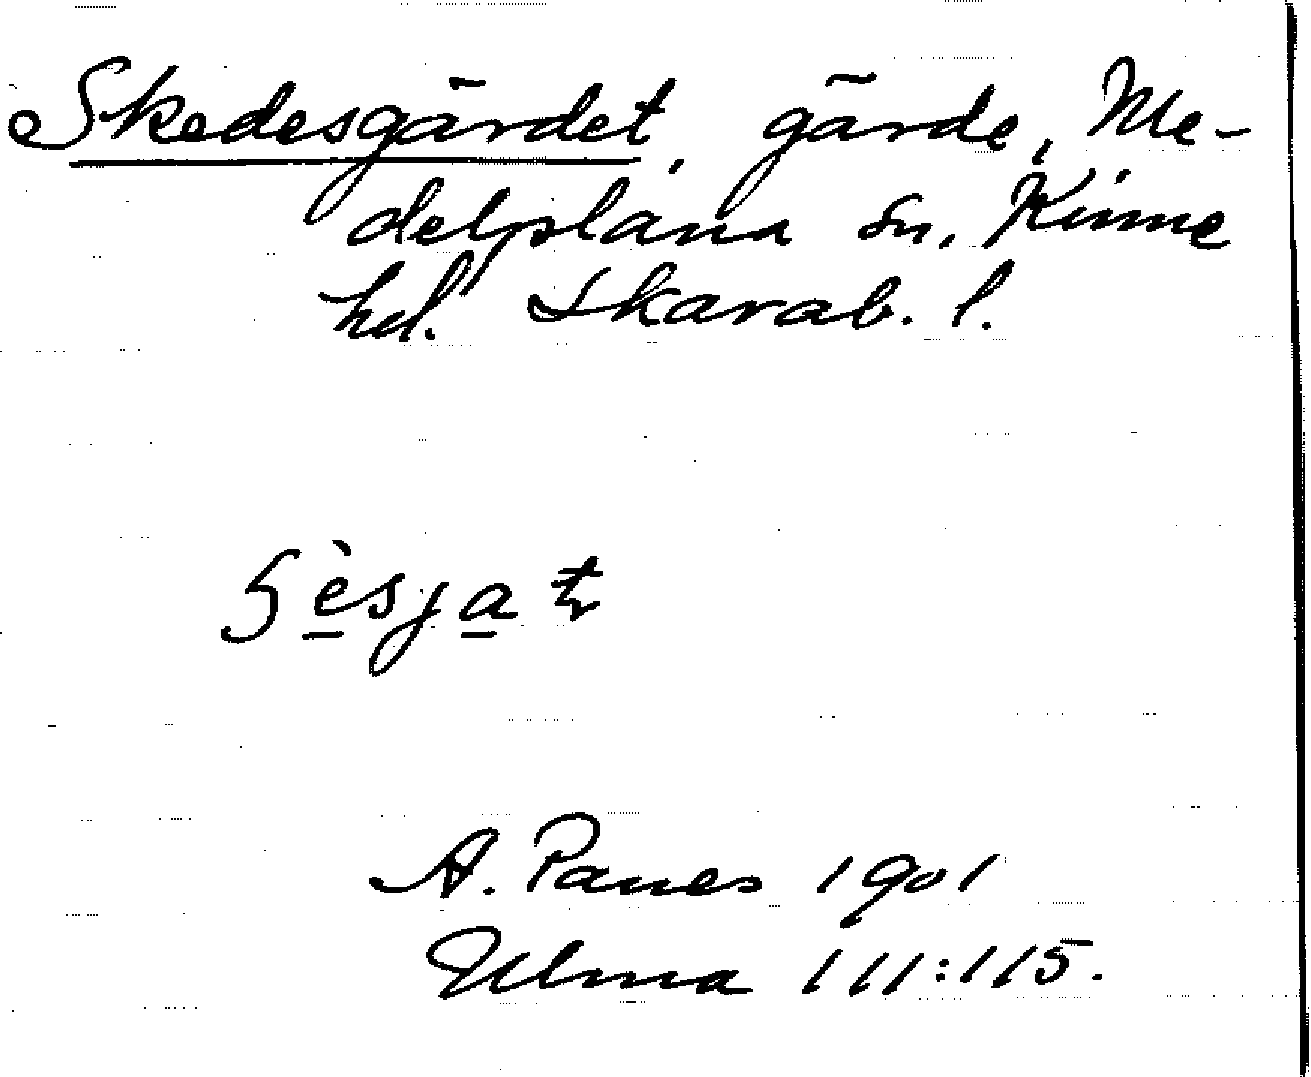 Skedesgärdet, gärde, Me-
delplana sn, Kinne
hd. Skarab. l.
A. Panes 1901
Ulma 111:115.